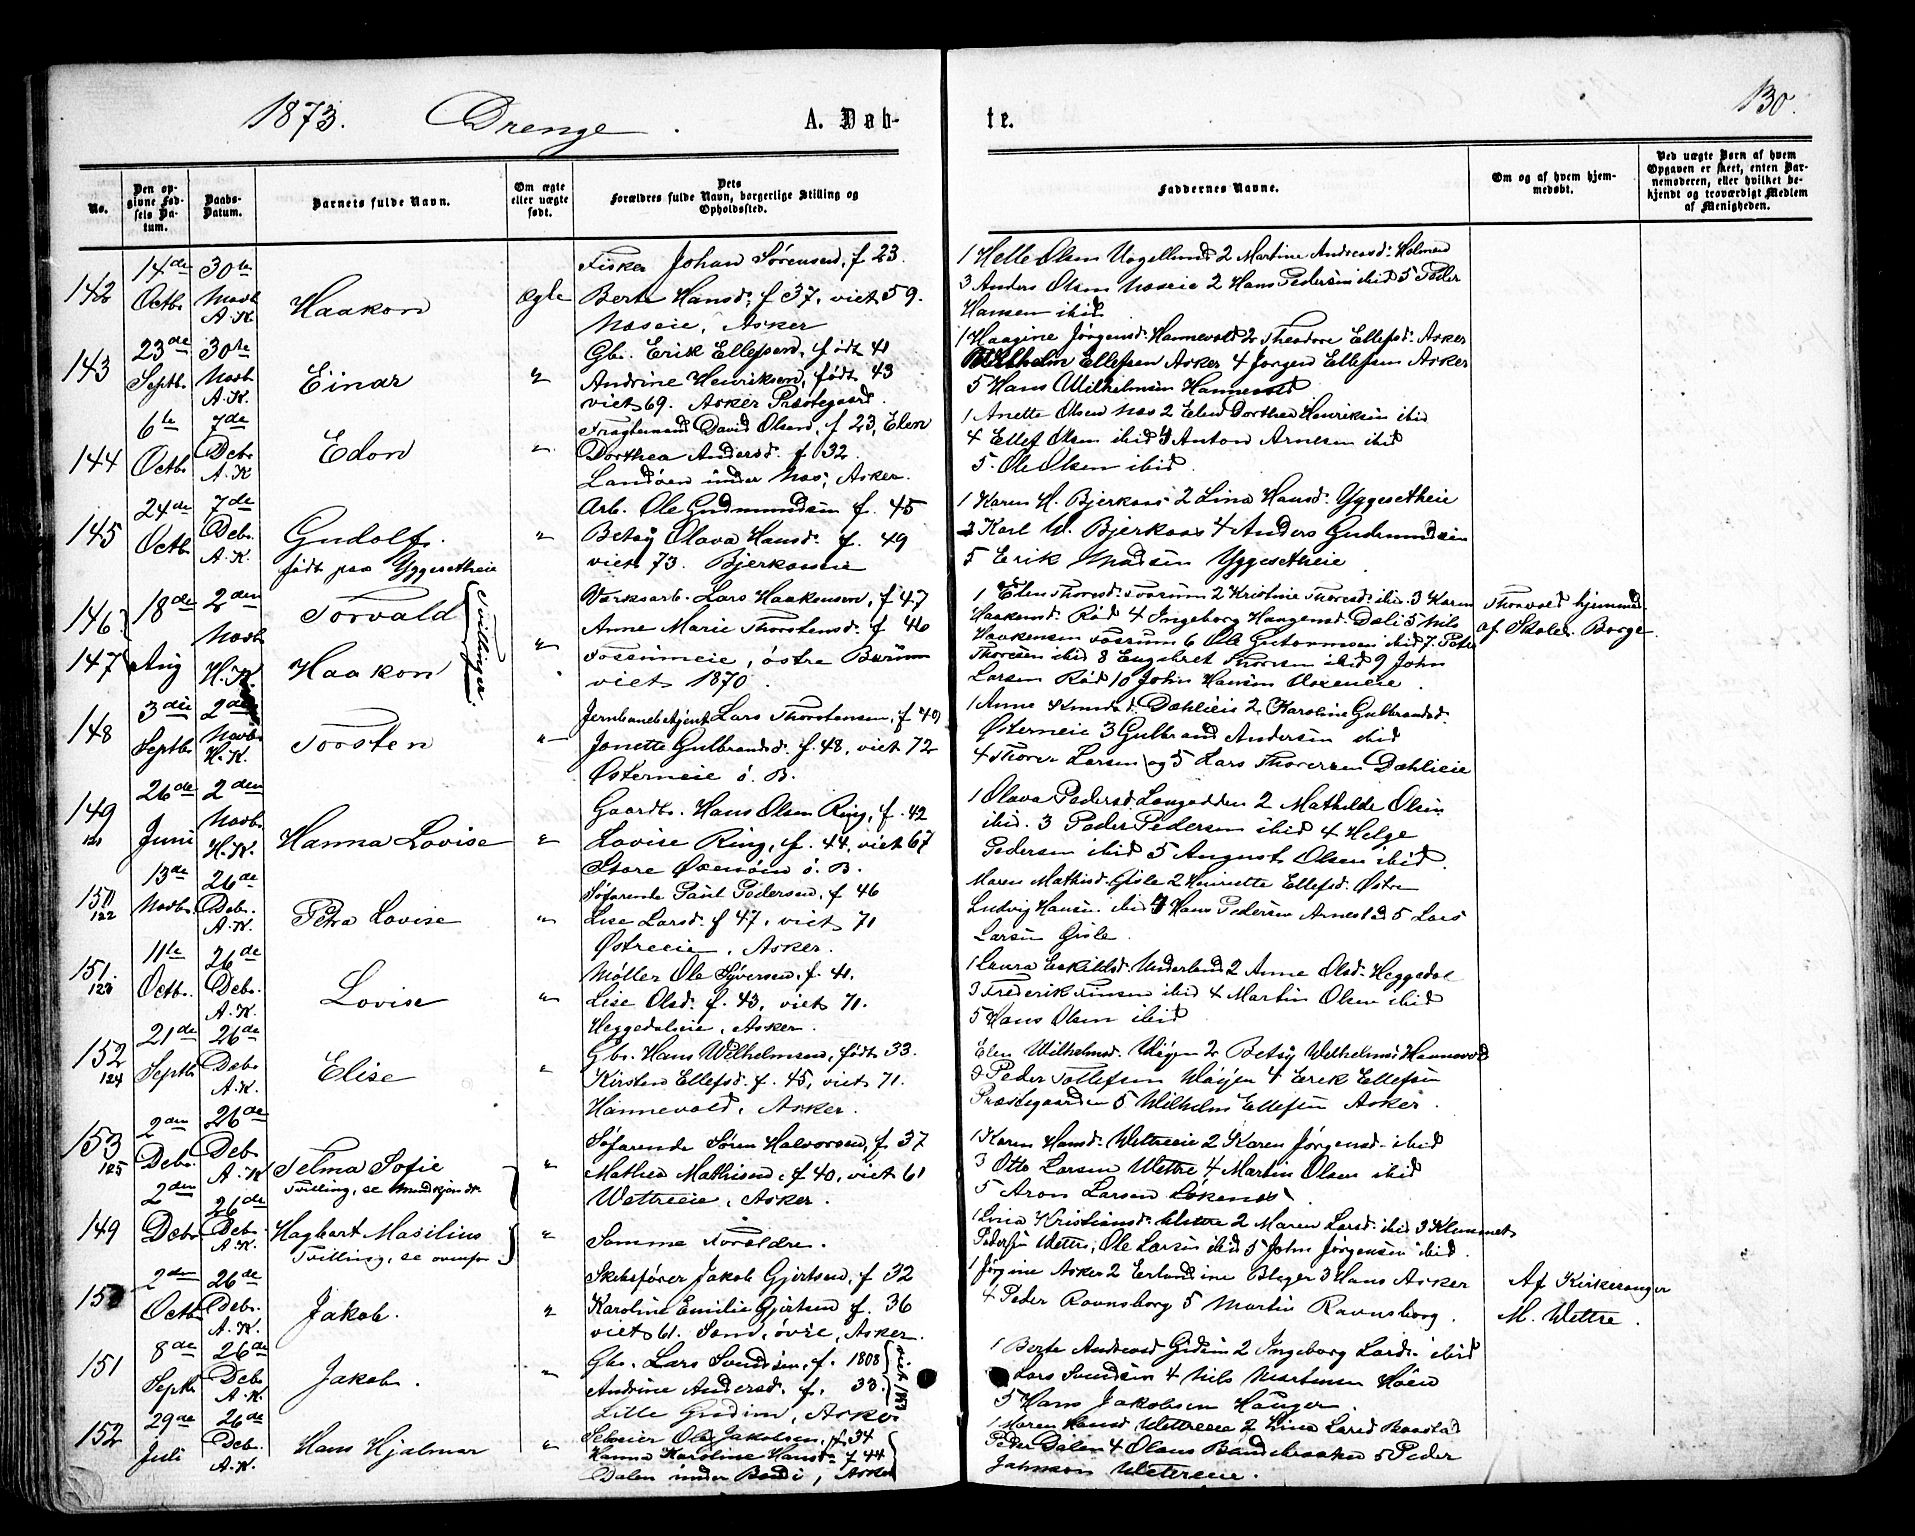 1873. Drenge. A. Døb-
te. 130.
No.
Den op-
givne Fød-
sels Da-
tum.
Daabs-
Datum.
Barnets fulde Navn.
Om ægte
eller uægte
født.
Dets
Forældres fulde Navn, borgerlige Stilling og
Opholdssted.
Faddernes Navne.
Om og af hvem hjem-
medøbt.
Ved uægte Børn af hvem
Opgaven er skeet, enten Bar-
nemoderen, eller hvilket be-
kjendt og troværdigt Medlem
af Menigheden.
142 14de Octb. 30te Novb. A.K. Haakon ægte
Fisker Johan Sørensen, f 23.
Berte Hansd. f 37, viet 59.
Næseie, Asker
1 Helle Olsen 2 Martine Andreasd. Holmen
3 Anders Olsen Næseie 2 Hans Pedersen ibid 5 Peder
Hansen ibid
143 23de Septb. 30te Novb. A.K. Einar "
Gbr. Erik Ellefsen, født 41
Andrine Henriksen, født 43
viet 69. Asker Præstegaard.
1 Haagine Jørgensd. Hannevold 2 Theodore Ellefsd. Asker
Wilhelm Ellefsen Asker 4 Jørgen Ellefsen Asker
5 Hans Wilhelmsen Hannevold
144 6te Octb. 7de Debr. A.K. Edon "
Fragtemand David Olsen, f 23, Elen
Dorthea Andersd. f 32.
Landøen under Næs, Asker.
1 Anette Olsen Næs 2 Elen Dorthea Henriksen ibid
4 Ellef Olsen ibid 4 Anton Arnesen ibid
5. Ole Olsen ibid.
145 24de Octb. 7de Debr. A.K. Gudolf.
født paa Yggesetheie "
Arb. Ole Gudmundsen f. 45
Betsy Olava Hansd. f. 49
viet 73. Bjerkaseie
1 Karen H. Bjerkaas 2 Lina Hansd. Yggesetheie
3 Karl W. Bjerkaas 4 Anders Gudmundsen
5 Erik Madsen Yggesetheie
146 147 18de Aug 2den Novb. H.K. Torvald
Haakon
Tvillinger. "
Værksarb. Lars Haakensen, f 47
Anne Marie Thorstensd. f 46
Fossumeie, østre Bærum
viet 1870.
1 Elen Thorsd. Fossum 2 Kristine Thoresd. ibid. 3 Karen
Haakensd. Rød 4 Ingeborg Haagensd. Dæli 5 Nils
Haakensen Fossum 6 Ole Guttormsen ibid 7. Peter
Thoresen ibid 8 Engebret Thoresen ibid 9 John
Larsen Rød 10 John Hansen Oxeneie.
Thorvald hjemmed.
af Skolel. Borge.
148 3die Septb. 2den Novb. H.K. Torsten "
Jernbanebetjent Lars Thorstensen, f. 40
Janette Gulbrandsd. f. 48, viet 72
Østerneie ø. B.
1 Anne Amundsd. Dæhlieie 2 Karoline Gulbrandsd.
Østerneie 3 Gulbrand Andersen ibid
4 Thorer Larsen og 5 Lars Thoresen Dæhlieie
149 121 26de Juni 2den Novb. H.K. Hanna Lovise "
Gaardb. Hans Olsen Ring, f. 42
Lovise Ring, f. 44, viet 67
Store Oxenøen ø. B.
1 Olava Pedersd. Langodden 2 Mathilde Olsen
ibid. 3 Peder Pedersen ibid 4 Helge
Pedersen ibid 5 August Olsen ibid.
150 122 13de Novb. 26de Debr. A.K. Petra Lovise "
Søfarende Paul Pedersen, f 46
Lise Larsd. f 47, viet 71
Østreeie, Asker.
Maren Mathisd. Gisle 2 Henriette Ellefsd. Østre
Ludvig Hansen ibid 4 Hans Pedersen Arnestad 5 Lars
Larsen Gisle.
151. 123 11te Octb. 26de Debr. A.K. Lovise "
Møller Ole Syversen, f. 41.
Lise Olsd. f. 43, viet 71.
Heggedalseie, Asker.
1 Laura Eskildsd. Underland 2 Anne Olsd. Heggedal
3 Frederik Finsen ibid 4 Martin Olsen ibid
5 Hans Olsen ibid
152 124 21de Septb. 26de Debr. A.K. Elise "
Gbr. Hans Wilhelmsen, født 33.
Kirsten Ellefsd. f. 45, viet 71.
Hannevold, Asker.
Elen Wilhelmsd. Wøyen 2 Betsy Wilhelmsd. Hannevold
3 Peder Tollefsen Wøyen 4 Erik Ellefsen
Præstegaarden 5 Wilhelm Ellefsen Asker.
153 125 2den Debr. 26de Debr. A.K. Telma Sofie
Tvilling, se Mandkjøndt. "
Søfarende Søren Halvorsen, f. 37
Mathea Mathisen, f 40, viet 61
Wettreeie, Asker.
1 Karen Hansd. Wettreeie 2 Karen Jørgensd. ibid
3 Otto Larsen Wettre 4 Martin Olsen ibid
5 Aron Larsen Løkenes
149 2den Debr. 26de Debr. A.K. Hagbart Masilius
Tvilling, se ovenfor "
Samme Forældre.
1 Lina Kristiansd. Wettre 2 Maren Larsd. ibid 3 Klemmet
Pedersen Wettre, Ole Larsen ibid 5 John Jørgensen ibid.
150 2den Octb. 26de Debr. A.K. Jakob. "
Skibsfører Jakob Gjertsen, f 32
Karoline Emilie Gjertsen f. 36
viet 61. Sem, øvre, Asker.
1 Jørgine Asker 2 Erlandine Bleger 3 Hans Asker
4 Peder Ravnsborg 5 Martin Ravnsborg.
Af Kirkesanger
M. Wettre.
151 8de Septb. 26de Debr. A.K. Jakob. "
Gbr. Lars Svendsen, f. 1808
Andrine Andersd. f. 33.
Lille Gudim, Asker
1 Berte Andreasd Gidim 2 Ingeborg Larsd. ibid
Lars Svendsen 4 Nils Martinsen Høen
5 Hans Jakobsen Hauger.
152 29de Juli 26de Debr. A.K. Hans Hjalmar "
Selveier Ole Jakobsen, f. 34
Hanna Karoline Hansd. f 44
Dalen under Bondi, Asker
1 Maren Hansd Wettreeie 2 Lina Larsd Bonstad
Peder Dalen 4 Olaus Bondibraaten 5 Peder
Johnson Wettreeie.